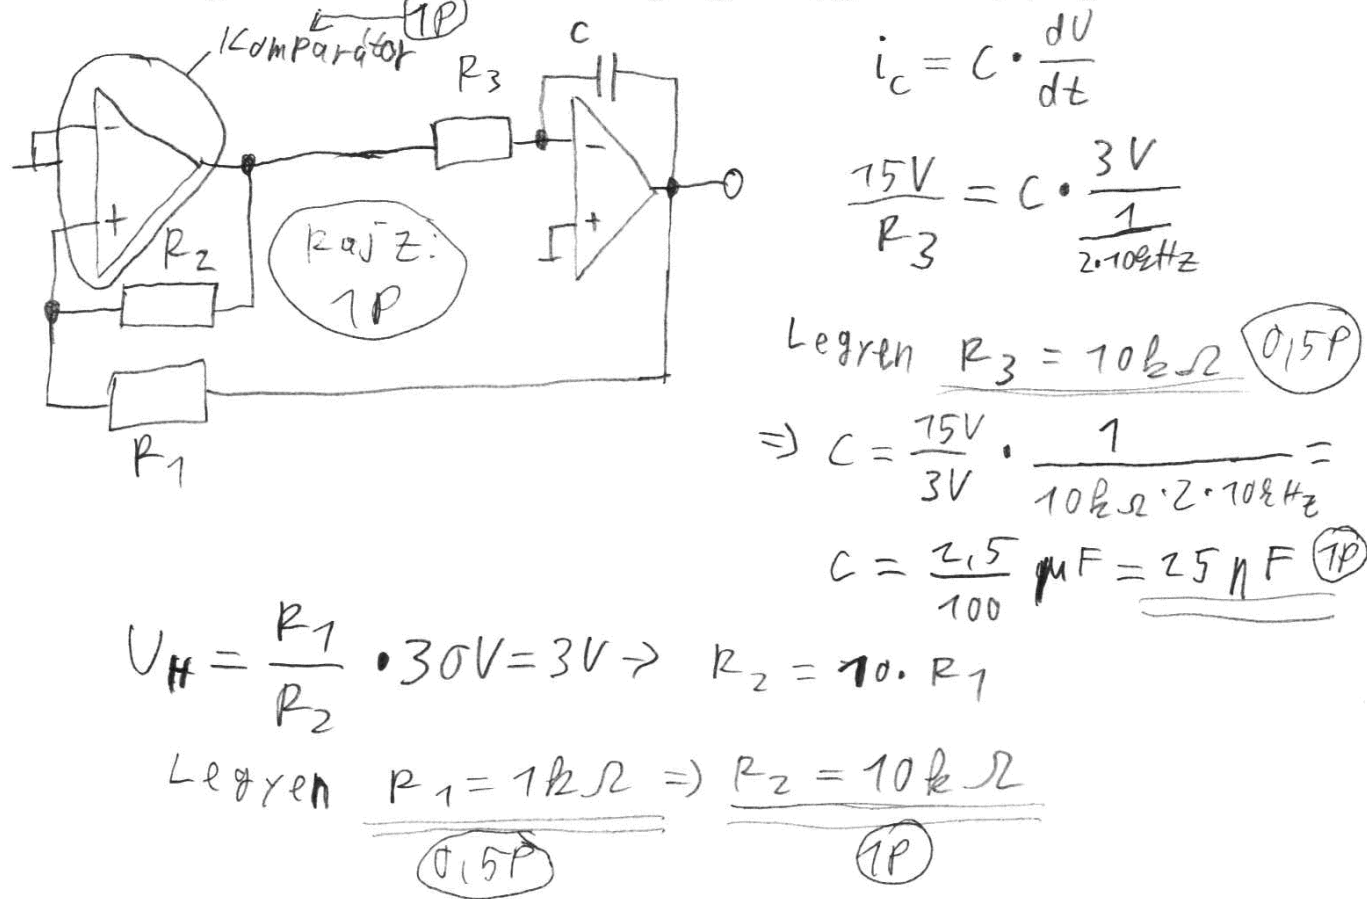 Komparátor 1P
C
R3
-
+
R2
Rajz:
1P
-
+
R1
i_c = C · dU/dt
15V/R3 = C · 3V/(1/(2·10kHz))
Legyen R3 = 10kΩ 0,5P
⇒ C = 15V/3V · 1/(10kΩ·2·10kHz) =
C = 2,5/100 µF = 25nF 1P
U_H = R1/R2 · 30V = 3V → R2 = 10· R1
Legyen R1 = 1kΩ ⇒ R2 = 10kΩ
0,5P 1P